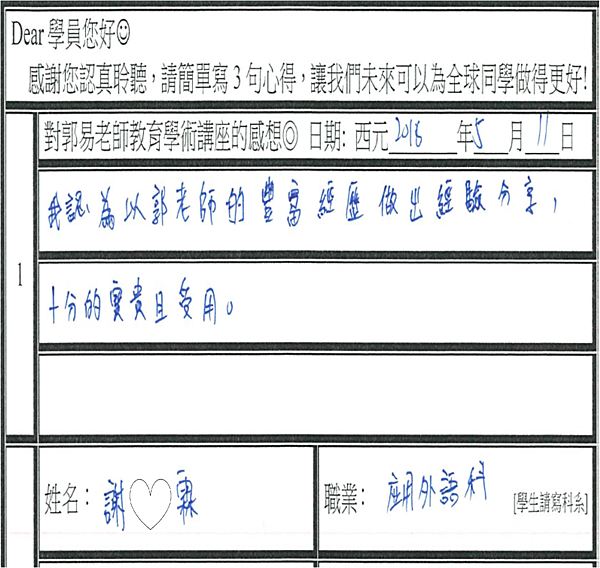 Dear 學員您好☺
感謝您認真聆聽，請簡單寫 3 句心得，讓我們未來可以為全球同學做得更好!
1
對郭易老師教育學術講座的感想◎ 日期: 西元 2018 年 5 月 11 日
我認為以郭老師的豐富經歷做出經驗分享，
十分的寶貴且受用。
姓名： 謝♡霖
職業： 應用外語科 [學生請寫科系]